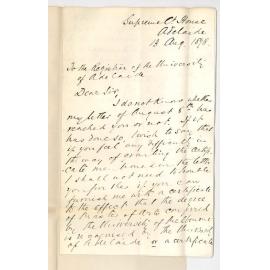 Supreme Ct House
Adelaide
13 Aug 1898.
To the Registrar of the University
of Adelaide
Dear Sir,
I do not know whether
my letter of August 8th has
reached you or not. If it
has done so, I wish to say that
if you feel any difficulty in
the way of awarding the certifi
cate me in the letter
I shall not need to trouble
you further if you can
furnish me with a certificate
to the effect that the degree
of Master of Arts conferred
by the University of Melbourne
is recognised by the University
of Adelaide or a certificate